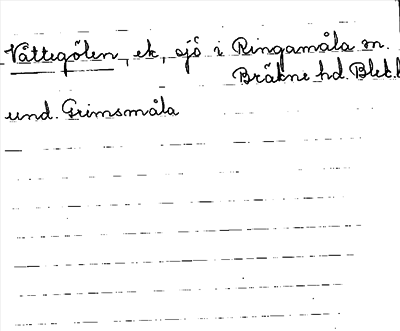 Vättegölen, ek, sjö i Ringamåla sn.
Bräkne hd. Blek.
und. Grimsmåla